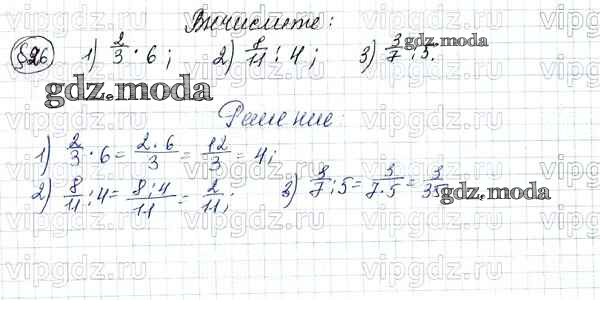 Вычислите:
§26 1) 2/3 · 6; 2) 8/11 : 4; 3) 3/7 : 5.
gdz.moda
gdz.moda
Решение:
1) 2/3 · 6 = 2·6/3 = 12/3 = 4;
2) 8/11 : 4 = 8:4/11 = 2/11; 3) 3/7 : 5 = 3/7·5 = 3/35
gdz.moda
vipgdz.ru